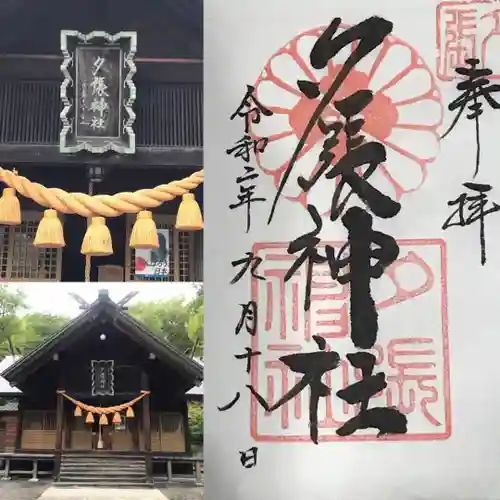 夕張神社
奉拝
夕張神社
令和二年九月十八日
夕張神社